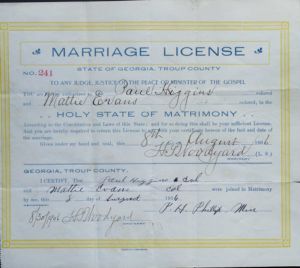 MARRIAGE LICENSE
STATE OF GEORGIA, TROUP COUNTY
NO. 241
TO ANY JUDGE, JUSTICE OF THE PEACE OR MINISTER OF THE GOSPEL
Paul Higgins colored
and Mattie Evans colored, in the
HOLY STATE OF MATRIMONY
According to the Constitution and Laws of this State; and for so doing this shall be your sufficient License. And
you are hereby required to return this License to me with your certificate hereon of the fact and date of the
marriage.
Given under my hand and seal, this 8th August
(L. S.)
GEORGIA, TROUP COUNTY.
I CERTIFY, That Paul Higgins col
and Mattie Evans col were joined in Matrimony
by me, this 8 day of August